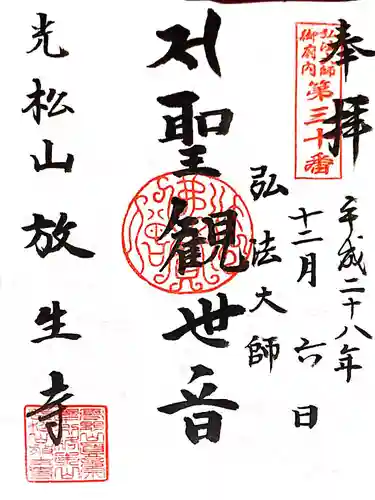 奉拝
弘法大師
御府内
第三十番
平成二十八年
十二月六日
聖観世音
弘法大師
光松山放生寺